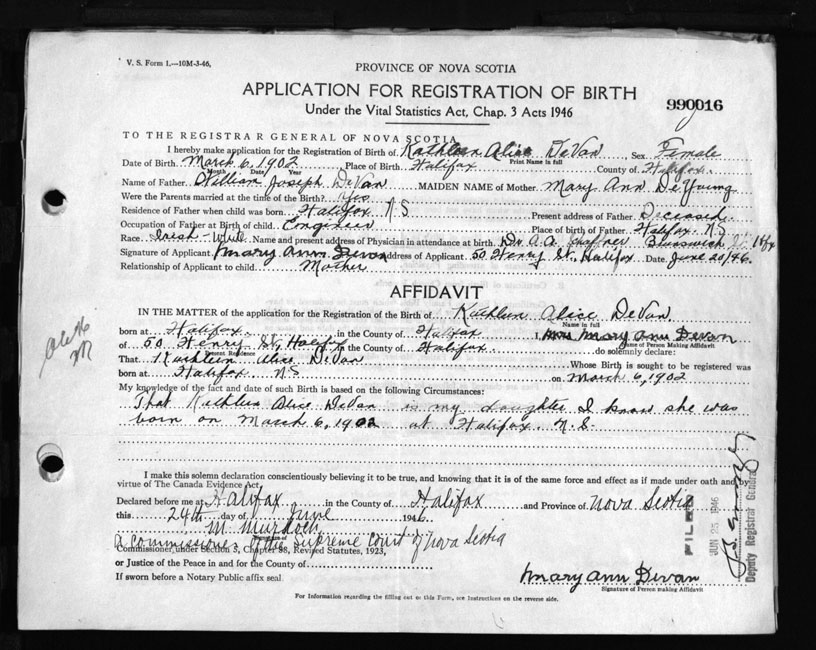 V. S. Form 1.—10M-3-46.
PROVINCE OF NOVA SCOTIA
APPLICATION FOR REGISTRATION OF BIRTH
Under the Vital Statistics Act, Chap. 3 Acts 1946
990016
TO THE REGISTRAR GENERAL OF NOVA SCOTIA
I hereby make application for the Registration of Birth of Kathleen Alice DeVan, Sex Female
Print Name in full
Date of Birth March 6, 1902, Place of Birth Halifax County of Halifax.
Month Date Year
Name of Father William Joseph DeVan MAIDEN NAME of Mother Mary Ann DeYoung
Were the Parents married at the time of the Birth? Yes
Residence of Father when child was born Halifax N S Present address of Father Deceased.
Occupation of Father at Birth of child Engineer Place of birth of Father Halifax N.S
Race Irish - White Name and present address of Physician in attendance at birth Dr. A. A. Brunswick St. Hfx
Signature of Applicant Mary Ann Devan Address of Applicant 50 Henry St. Halifax Date June 20/46.
Relationship of Applicant to child Mother
AFFIDAVIT
IN THE MATTER of the application for the Registration of the Birth of Kathleen Alice DeVan.
Name in full
born at Halifax. in the County of Halifax I, Mrs Mary Ann Devan
Name of Person Making Affidavit
of 50 Henry St, Halifax in the County of Halifax. do solemnly declare:
Present Residence
That Kathleen Alice DeVan Whose Birth is sought to be registered was
born at Halifax N S on March 6, 1902
My knowledge of the fact and date of such Birth is based on the following Circumstances:
That Kathleen Alice DeVan is my daughter I know she was
born on March 6, 1902 at Halifax. N. S.
I make this solemn declaration conscientiously believing it to be true, and knowing that it is of the same force and effect as if made under oath and by
virtue of The Canada Evidence Act.
Declared before me at Halifax in the County of Halifax and Province of Nova Scotia
this 24th day of June 1946
M. Murdoch
A Commissioner of the Supreme Court of Nova Scotia
Commissioner, under Section 5, Chapter 38, Revised Statutes, 1923,
or Justice of the Peace in and for the County of
If sworn before a Notary Public affix seal
Mary Ann Devan
Signature of Person making Affidavit
For Information regarding the filling out of this Form, see Instructions on the reverse side.
FILED
JUN 25 1946
Deputy Registrar General